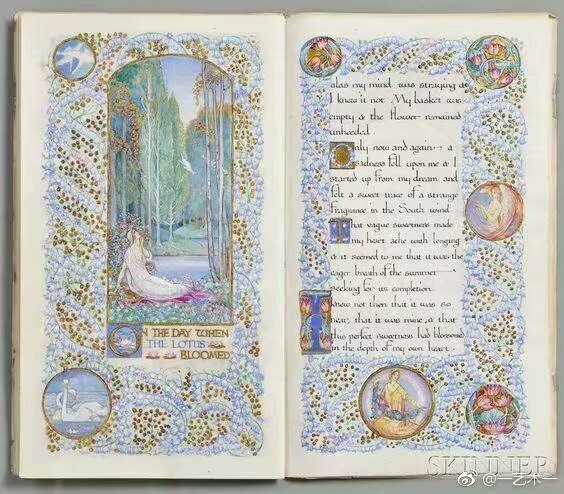 ON THE DAY WHEN
THE LOTUS
BLOOMED
alas my mind was straying &
I knew it not. My basket was
empty & the flower remained
unheeded.
Only now and again a
sadness fell upon me & I
started up from my dream and
felt a sweet trace of a strange
fragrance in the South wind
That vague sweetness made
my heart ache with longing
& it seemed to me that it was the
eager breath of the summer
seeking for its completion
I knew not then that it was so
near, that it was mine, & that
this perfect sweetness had blossomed
in the depth of my own heart.
SKINNER
@一艺术一